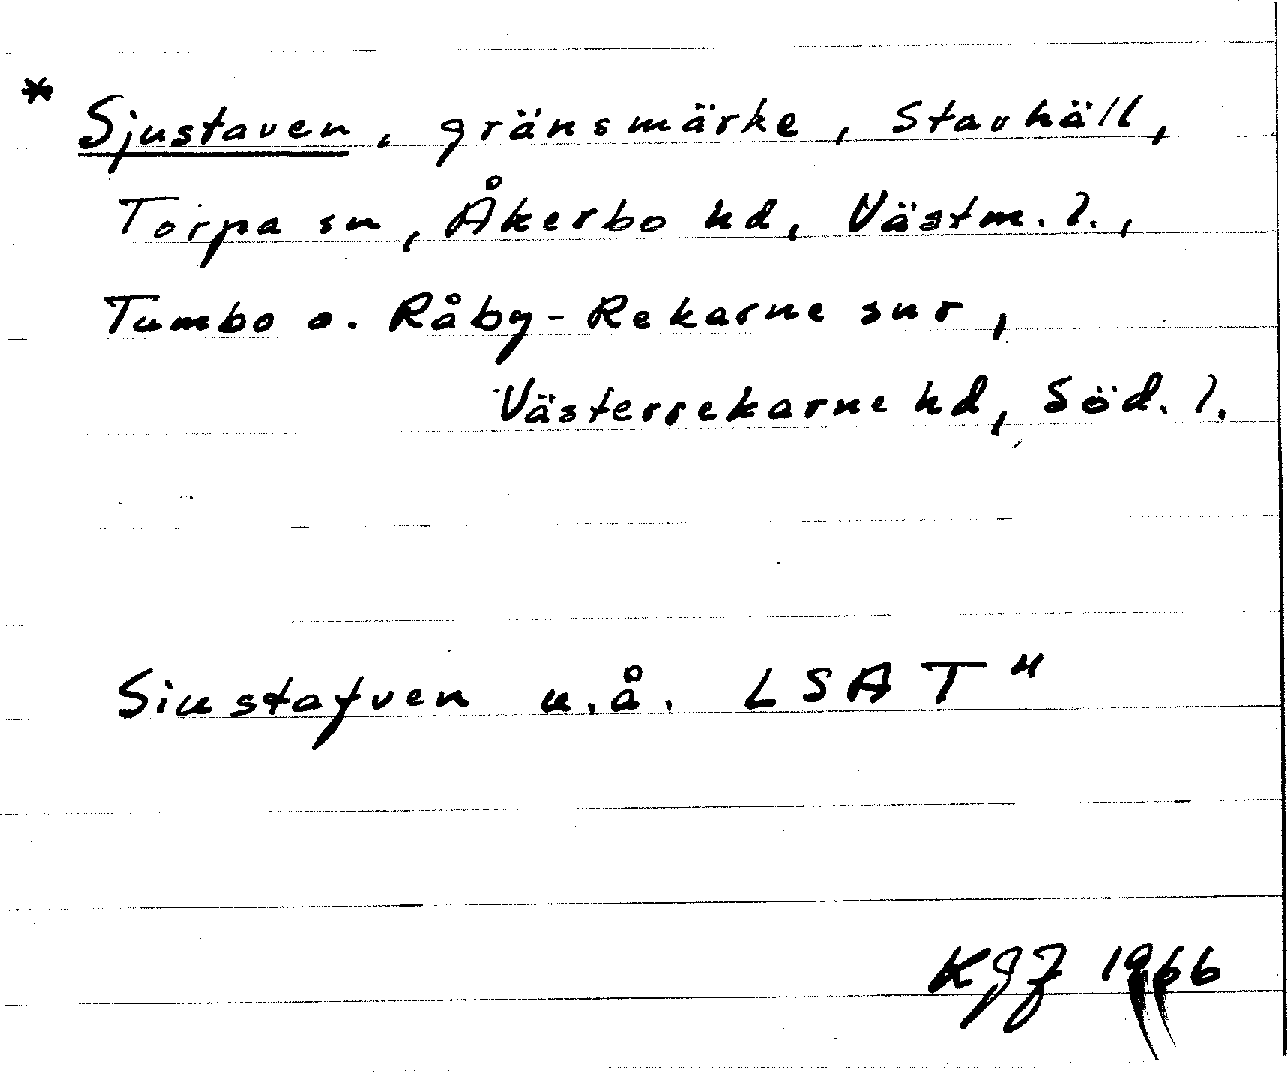 * Sjustaven, gränsmärke, Stavhäll,
Torpa sn, Åkerbo hd, Västm. l.,
Tumbo o. Råby-Rekarne snr,
Västerrekarne hd, Söd. l.
Siustafven u.å. LSA T"
1966